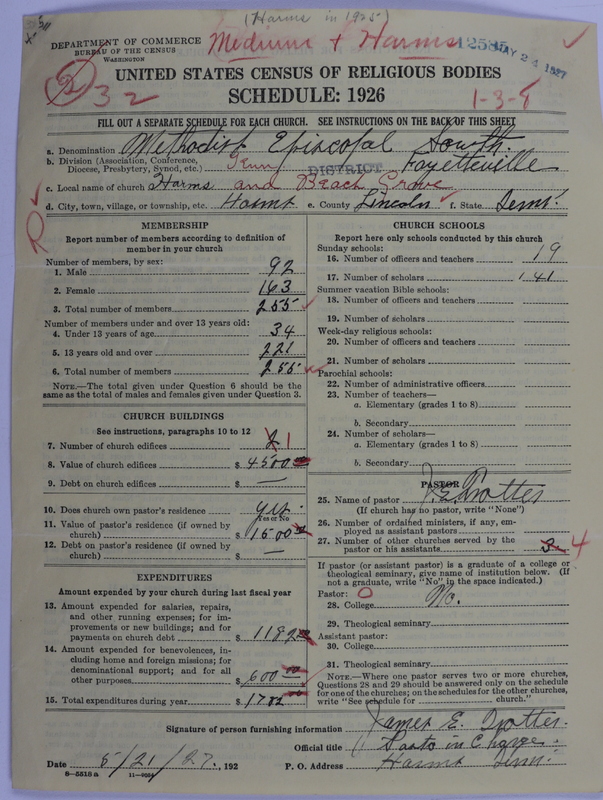 (Harms in 1925)
DEPARTMENT OF COMMERCE
BUREAU OF THE CENSUS
WASHINGTON
Medium + Harms
12585 MAY 24 1927
UNITED STATES CENSUS OF RELIGIOUS BODIES
SCHEDULE: 1926
2 32
1-3-8
FILL OUT A SEPARATE SCHEDULE FOR EACH CHURCH. SEE INSTRUCTIONS ON THE BACK OF THIS SHEET
a. Denomination Methodist Episcopal South.
b. Division (Association, Conference, Diocese, Presbytery, Synod, etc.) Tenn DISTRICT Fayetteville
c. Local name of church Harms and Beach Grove
d. City, town, village, or township, etc. Harms e. County Lincoln f. State Tenn.
R
MEMBERSHIP
Report number of members according to definition of
member in your church
Number of members, by sex:
1. Male 92
2. Female 163
3. Total number of members 255
Number of members under and over 13 years old:
4. Under 13 years of age 34
5. 13 years old and over 221
6. Total number of members 255
NOTE.—The total given under Question 6 should be the
same as the total of males and females given under Question 3.
CHURCH BUILDINGS
See instructions, paragraphs 10 to 12
7. Number of church edifices 2 1
8. Value of church edifices $ 4500
9. Debt on church edifices $ —
10. Does church own pastor's residence yes.
Yes or No
11. Value of pastor's residence (if owned by
church) $ 1500
12. Debt on pastor's residence (if owned by
church) $ —
EXPENDITURES
Amount expended by your church during last fiscal year
13. Amount expended for salaries, repairs,
and other running expenses; for im-
provements or new buildings; and for
payments on church debt $ 1182
14. Amount expended for benevolences, in-
cluding home and foreign missions; for
denominational support; and for all
other purposes $ 600
15. Total expenditures during year $ 1782
CHURCH SCHOOLS
Report here only schools conducted by this church
Sunday schools:
16. Number of officers and teachers 19
17. Number of scholars 141
Summer vacation Bible schools:
18. Number of officers and teachers
19. Number of scholars
Week-day religious schools:
20. Number of officers and teachers
21. Number of scholars
Parochial schools:
22. Number of administrative officers
23. Number of teachers—
a. Elementary (grades 1 to 8)
b. Secondary
24. Number of scholars—
a. Elementary (grades 1 to 8)
b. Secondary
PASTOR
25. Name of pastor J. E. Trotter
(If church has no pastor, write "None")
26. Number of ordained ministers, if any, em-
ployed as assistant pastors
27. Number of other churches served by the
pastor or his assistants 3 4
If pastor (or assistant pastor) is a graduate of a college or
theological seminary, give name of institution below. (If
not a graduate, write "No" in the space indicated.)
Pastor: O
28. College No.
29. Theological seminary
Assistant pastor:
30. College
31. Theological seminary
NOTE.—Where one pastor serves two or more churches,
Questions 28 and 29 should be answered only on the schedule
for one of the churches; on the schedules for the other churches,
write "See schedule for church."
Signature of person furnishing information James E. Trotter.
Official title Pastor in Charge.
Date 5/21/27., 192 P. O. Address Harms Tenn.
8—5518 a 11—9094